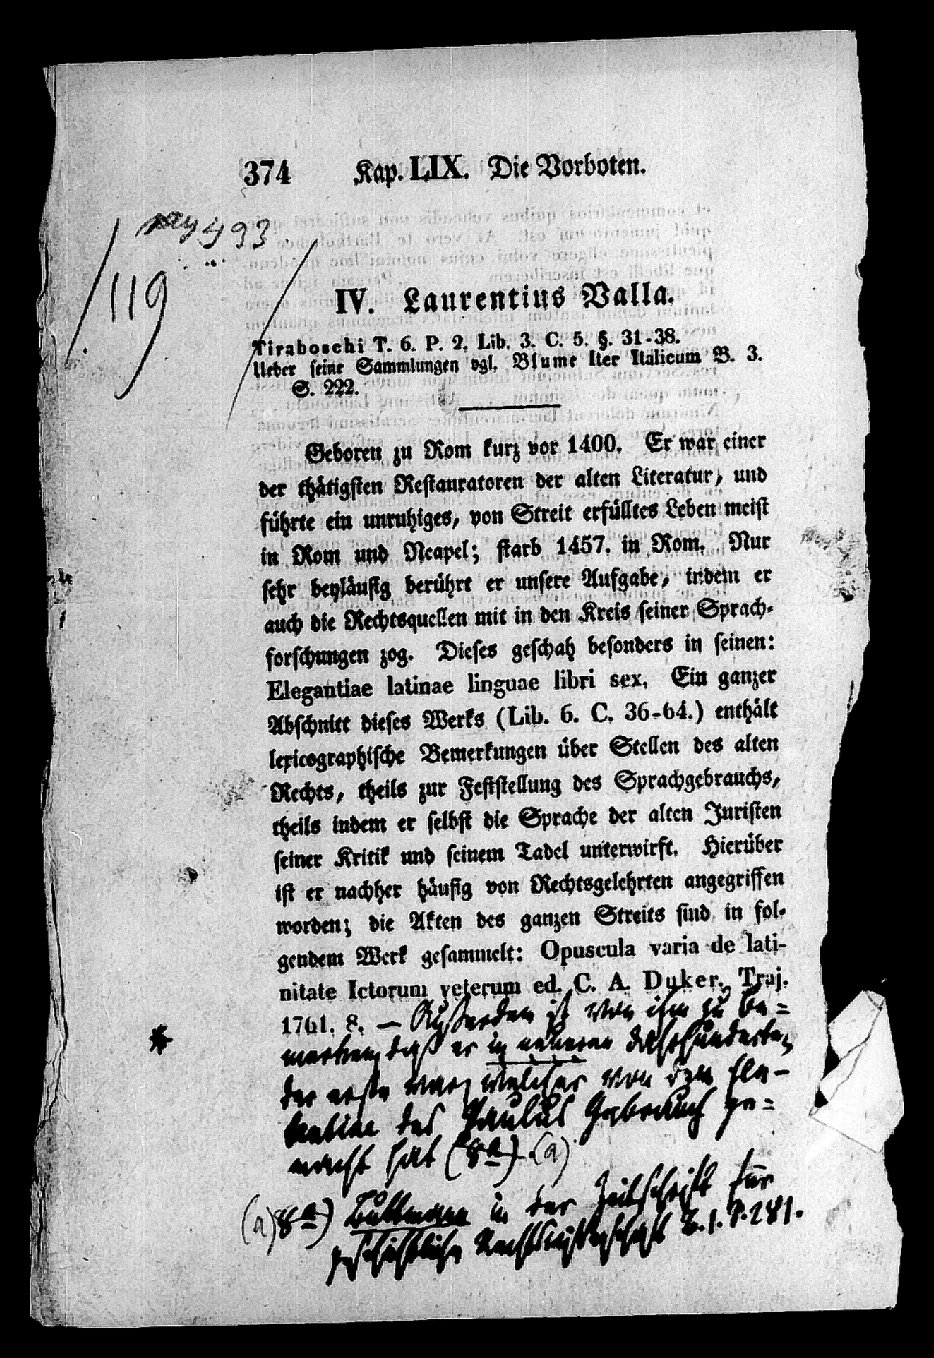 374 Kap. LIX. Die Vorboten.
pag 493
119
IV. Laurentius Valla.
Tiraboschi T. 6. P. 2. Lib. 3. C. 5. §. 31-38.
Ueber seine Sammlungen vgl. Blume Iter Italicum B. 3.
S. 222.
Geboren zu Rom kurz vor 1400. Er war einer
der thätigsten Restauratoren der alten Literatur, und
führte ein unruhiges, von Streit erfülltes Leben meist
in Rom und Neapel; starb 1457. in Rom. Nur
sehr beyläufig berührt er unsere Aufgabe, indem er
auch die Rechtsquellen mit in den Kreis seiner Sprach-
forschungen zog. Dieses geschah besonders in seinen:
Elegantiae latinae linguae libri sex. Ein ganzer
Abschnitt dieses Werks (Lib. 6. C. 36-64.) enthält
lexicographische Bemerkungen über Stellen des alten
Rechts, theils zur Feststellung des Sprachgebrauchs,
theils indem er selbst die Sprache der alten Juristen
seiner Kritik und seinem Tadel unterwirft. Hierüber
ist er nachher häufig von Rechtsgelehrten angegriffen
worden; die Akten des ganzen Streits sind in fol-
gendem Werk gesammelt: Opuscula varia de lati-
nitate Ictorum veterum ed. C. A. Duker. Traj.
1761. 8. — Außerdem ist von ihm zu be-
merken, daß er in neueren Jahrhunderten
der erste war, welcher von den Sen-
tentiae des Paulus Gebrauch ge-
macht hat (8a). (a)
(a) 8a) Buttmann in der Zeitschrift für
geschichtliche Rechtswissenschaft B. 1. S. 281.